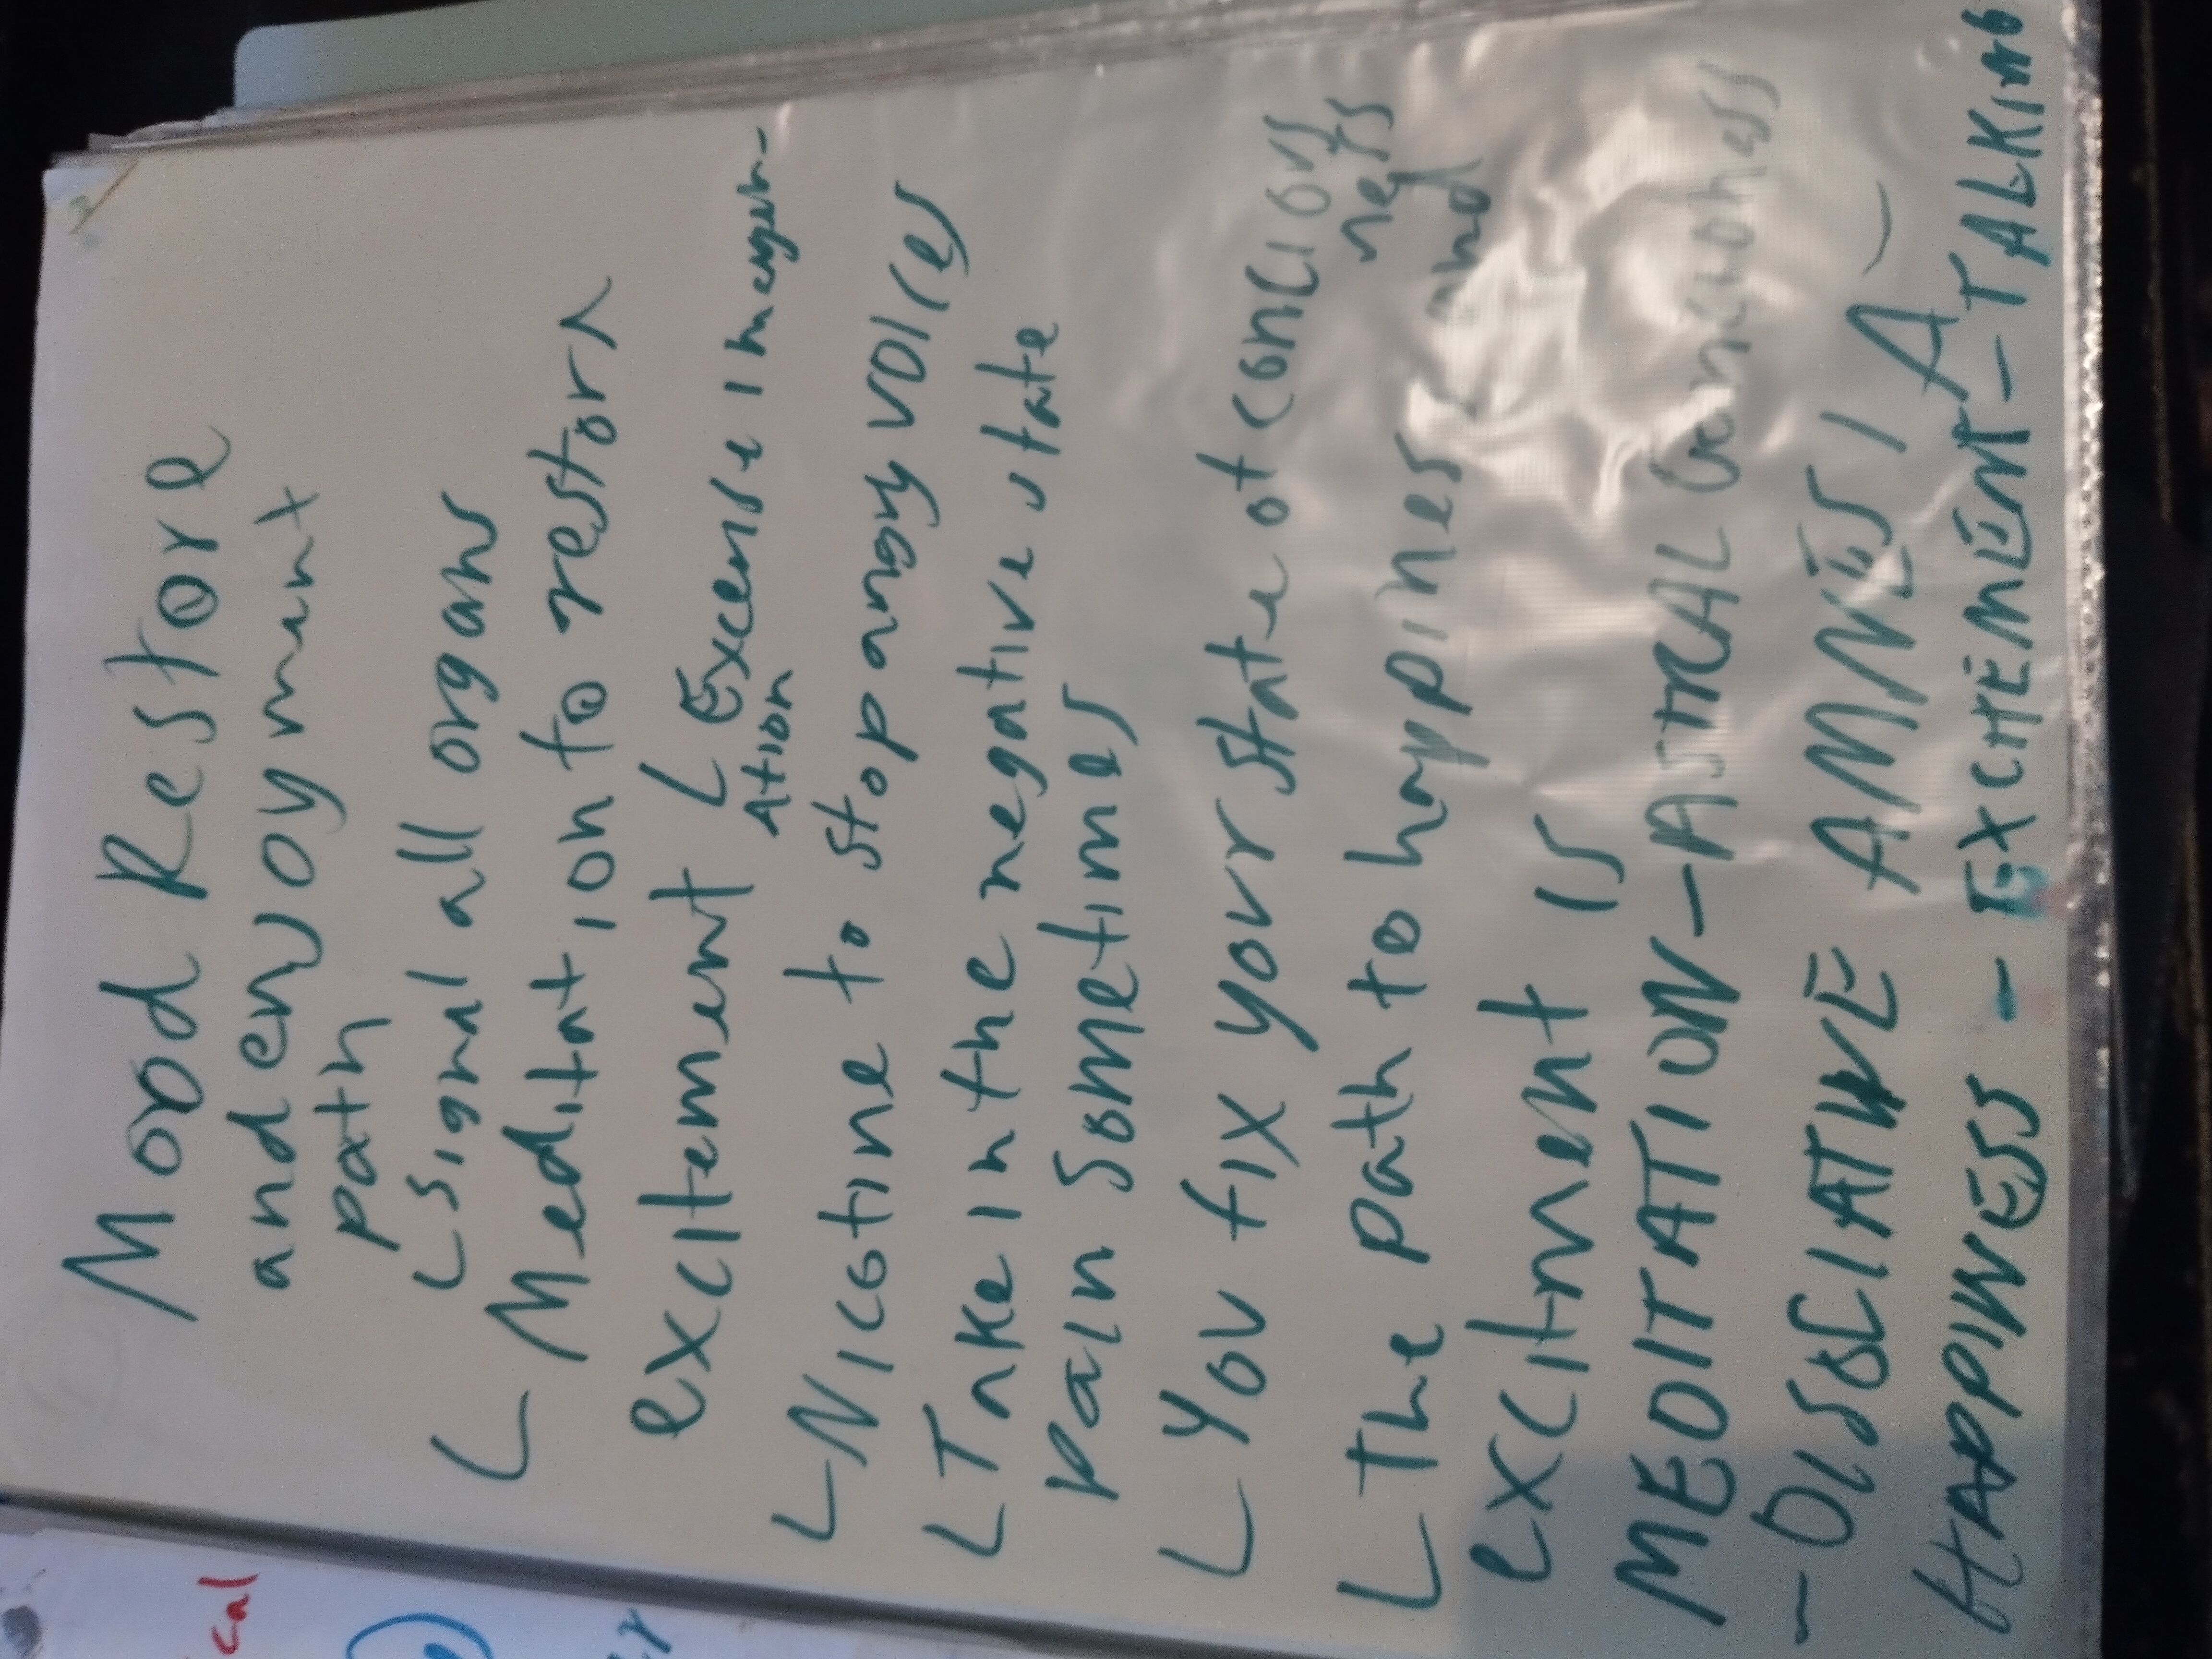 Mood Restore
and enjoyment
path
L signal all organs
L Meditation to restorn
excitement L Excersse imagen-
ation
L Nicotine to stop angry voices
L Take in the negative state
pain sometimes
L You fix your state of conscious
ness
L The path to happines and
excitment is
MEDITATION - ASTRAL Conciohess
- DISSCIATIVE AMNESIA
HAPPINESS - EXCITEMENT - TALKING
cal